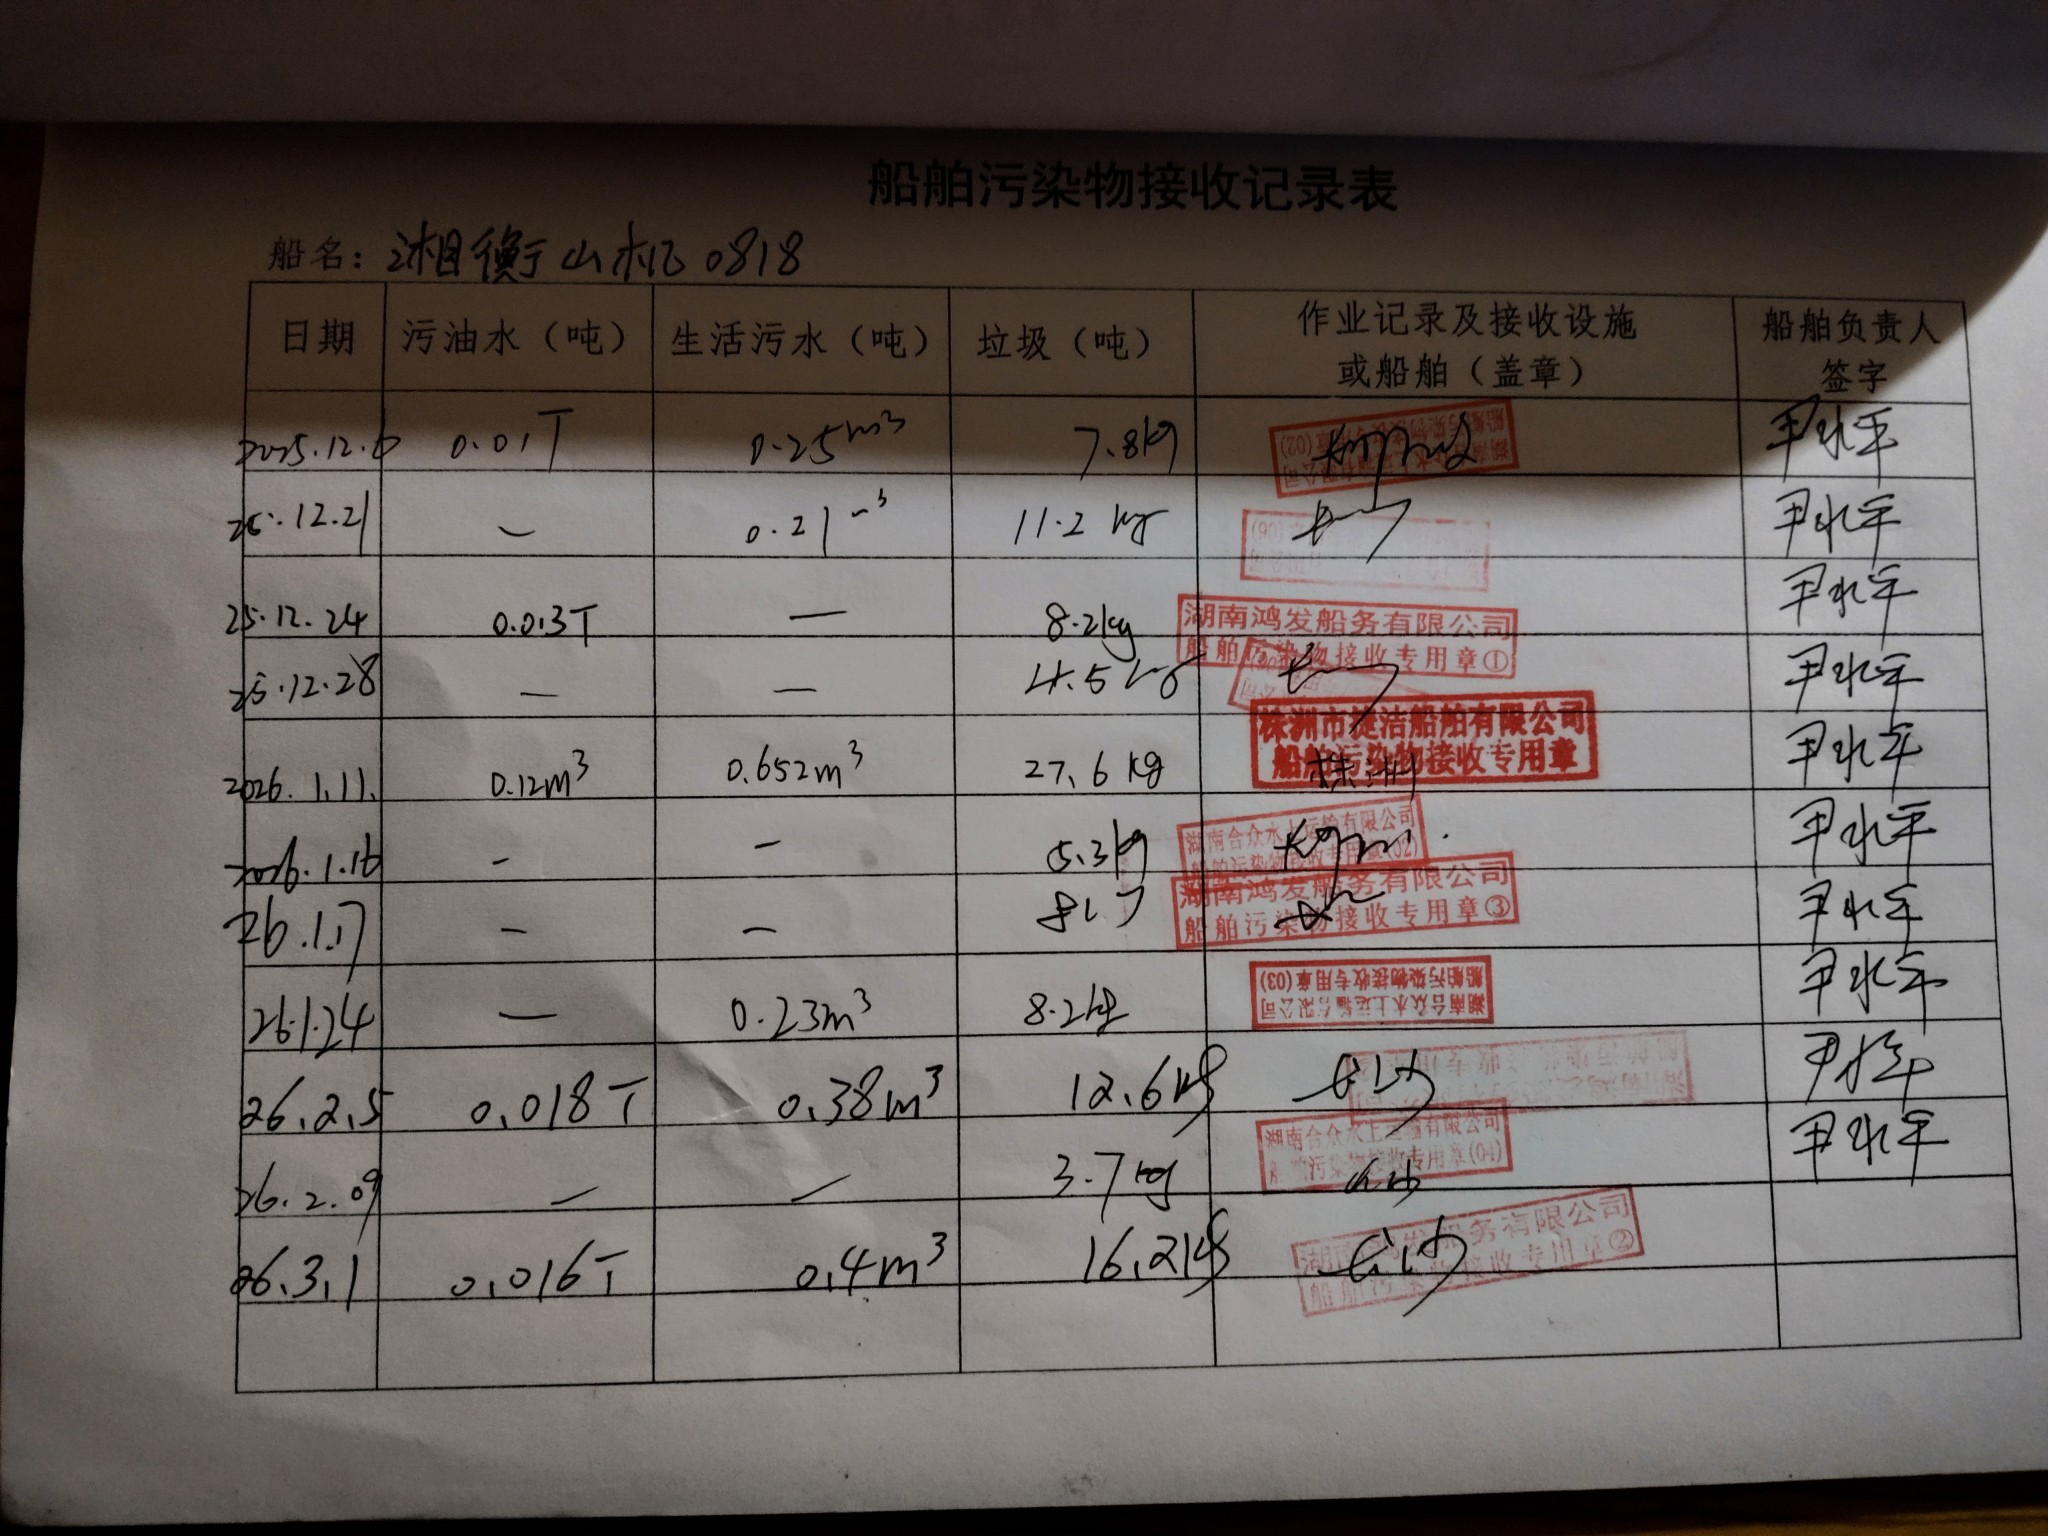 船舶污染物接收记录表
船名：湘衡山机0818
日期 污油水（吨） 生活污水（吨） 垃圾（吨） 作业记录及接收设施或船舶（盖章） 船舶负责人签字
2025.12.6 0.01T 0.25m³ 7.8kg 尹水平
25.12.21 — 0.21m³ 11.2kg 尹水平
25.12.24 0.013T — 8.2kg 湖南鸿发船务有限公司 船舶污染物接收专用章① 尹水平
25.12.28 — — 4.5kg 尹水平
2026.1.11. 0.12m³ 0.652m³ 27.6kg 株洲市捷洁船舶有限公司 船舶污染物接收专用章 株洲 尹水平
2026.1.16 - - 5.3kg 湖南合众水上运输有限公司 船舶污染物接收专用章(02) 尹水平
26.1.17 - - 湖南鸿发船务有限公司 船舶污染物接收专用章③ 尹水平
26.1.24 — 0.23m³ 8.2kg 湖南合众水上运输有限公司 船舶污染物接收专用章(03) 尹水平
26.2.5 0.018T 0.38m³ 12.6kg 长沙 尹水平
26.2.09 — — 3.7kg 湖南合众水上运输有限公司 船舶污染物接收专用章(04) 长沙 尹水平
26.3.1 0.016T 0.4m³ 16.2kg 湖南鸿发船务有限公司 船舶污染物接收专用章② 长沙